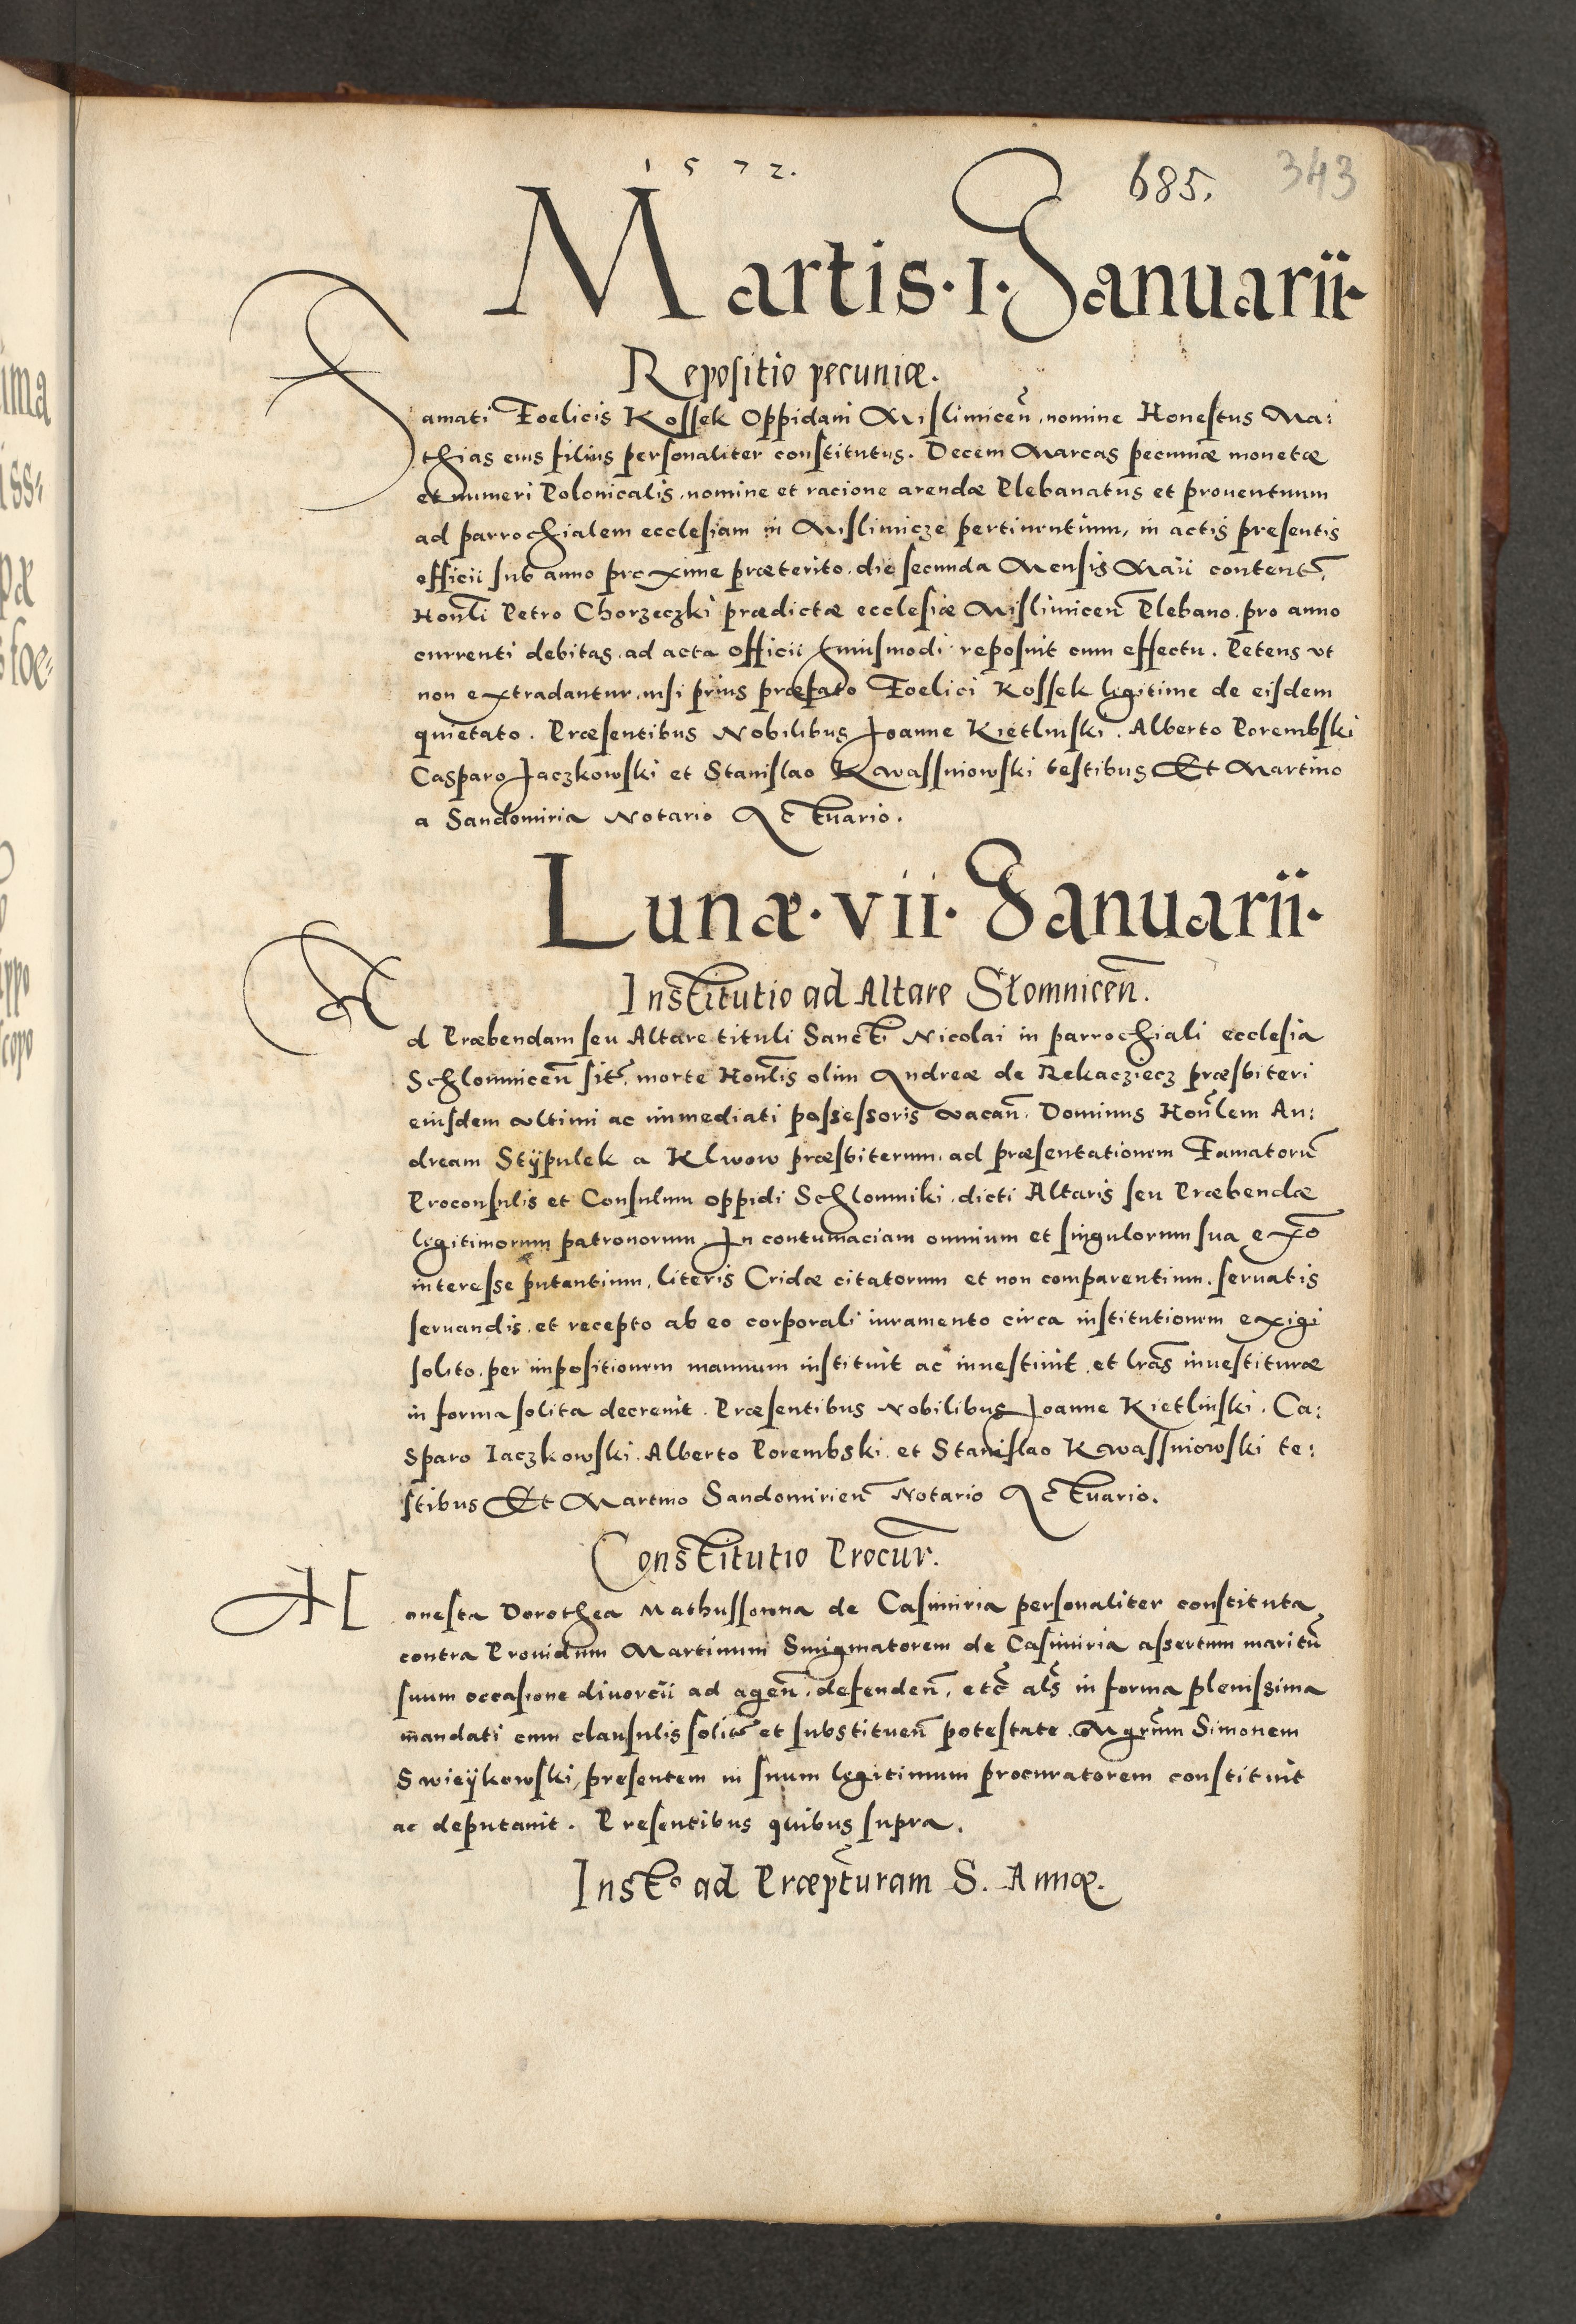 1572.
685. 343
Martis · 1 · Januarii ·
Repositio pecuniæ.
Famati Foelicis Kossek Oppidani Mislimiceñ, nomine Honestus Ma:
thias eius filius personaliter constitutus. Decem Marcas pecuniæ monetæ
et numeri Polonicalis, nomine et racione arendæ Plebanatus et prouentuum
ad parrochialem ecclesiam in Mislimicze pertinentium, in actis presentis
officii sub anno proxime præterito, die secunda Mensis Maii content.
Honli Petro Chorzeczki prædictæ ecclesiæ Mislimiceñ Plebano, pro anno
currenti debitas, ad acta officii huiusmodi reposuit cum effectu. Petens vt
non extradantur, nisi prius præfato Foelici Kossek legitime de eisdem
quietato. Præsentibus Nobilibus Joanne Kietlinski, Alberto Porembski
Casparo Jaczkowski et Stanislao Kwassniowski testibus Et Martino
a Sandomiria Notario Actuario.
Lunæ · vii · Januarii ·
Institutio ad Altare Słomniceñ.
Ad Præbendam seu Altare tituli Sancti Nicolai in parrochiali ecclesia
Schlomniceñ sit. morte Honlis olim Andreæ de Rekacziecz præsbiteri
eiusdem vltimi ac immediati possessoris vacañ. Dominus Honlem An:
dream Stÿpulek a Klwow præsbiterum, ad præsentationem Famatorũ
Proconsulis et Consulum oppidi Schlomniki, dicti Altaris seu Præbendæ
legitimorum patronorum. In contumaciam omnium et singulorum sua exõ
interesse putantium, literis Cridæ citatorum et non comparentium, seruatis
seruandis, et recepto ab eo corporali iuramento circa institutionem exigi
solito, per impositionem manuum instituit ac inuestiuit, et lras inuestituræ
in forma solita decreuit. Præsentibus Nobilibus Joanne Kietlinski, Ca:
sparo Iaczkowski, Alberto Porembski, et Stanislao Kwassniowski te:
stibus Et Martino Sandomirieñ Notario Actuario.
Constitutio Procur.
Honesta Dorothea Mathussowna de Casimiria personaliter constituta,
contra Prouidum Martinum Smigmatorem de Casimiria assertum maritũ
suum occasione diuorcii ad ageñ, defendeñ, etc̃ als in forma plenissima
mandati cum clausulis solit. et substitueñ potestate, Mgrum Simonem
Swieÿkowski, presentem in suum legitimum procuratorem constituit
ac deputauit. Presentibus quibus supra.
Inst.º ad Præpturam S. Annæ.